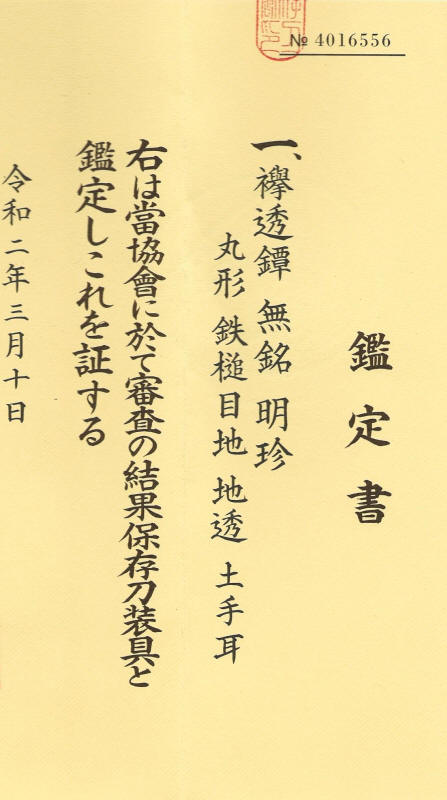 № 4016556
鑑定書
一、襷透鐔 無銘 明珍
丸形 鉄槌目地 地透 土手耳
右は當協會に於て審査の結果保存刀装具と
鑑定しこれを証する
令和二年三月十日